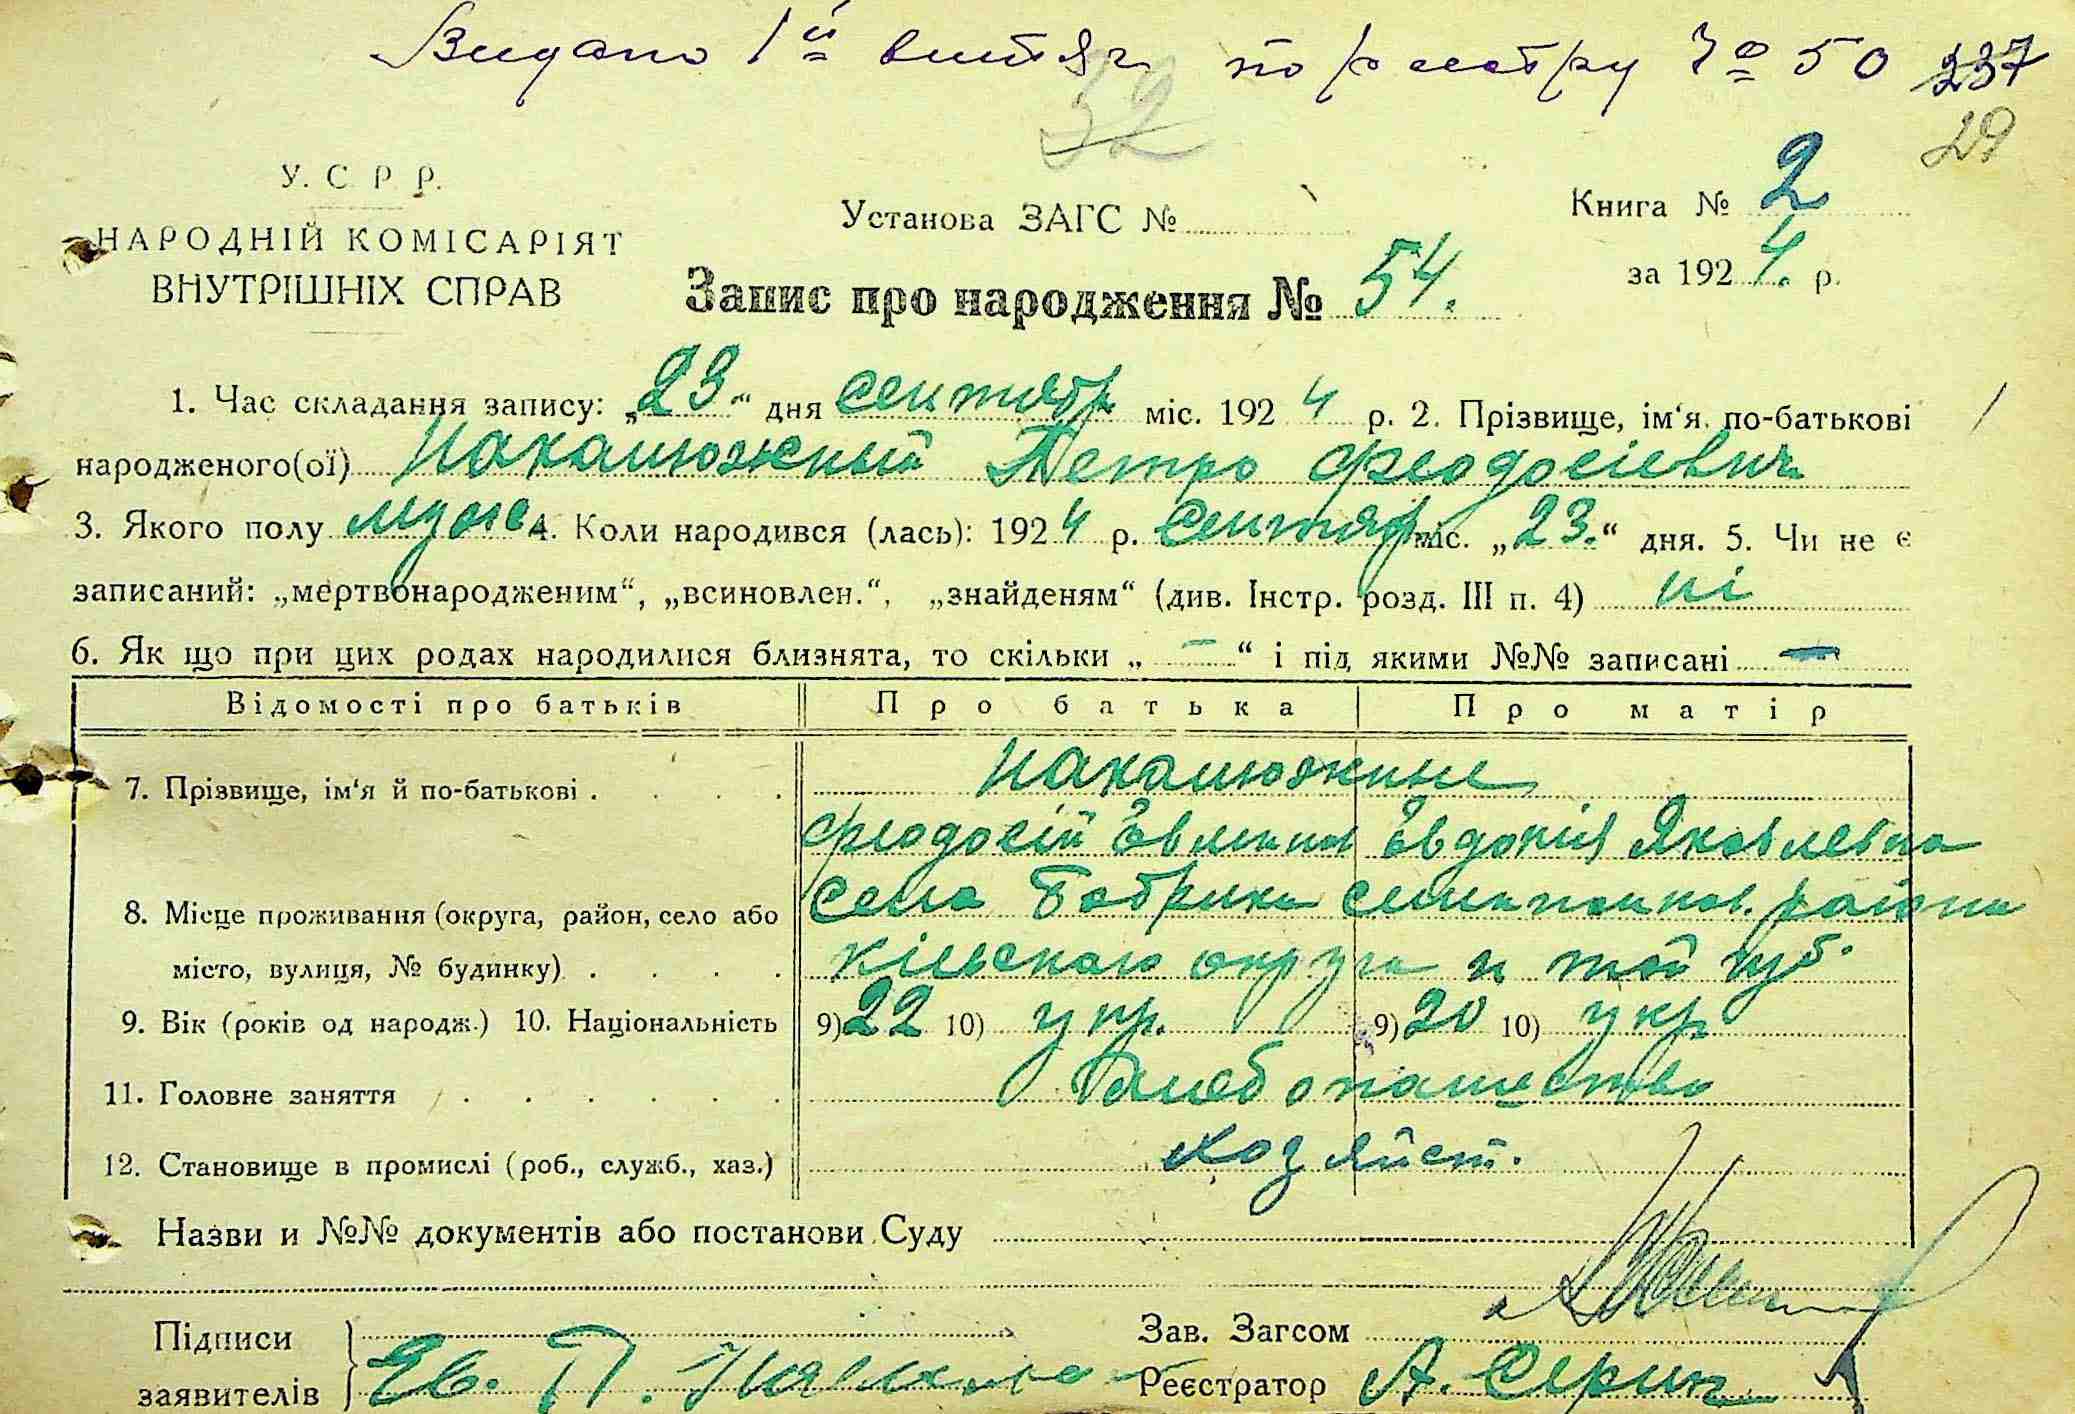 Видано 1й витяг по реєстру № 50 237
52 29
У. С. Р. Р.
НАРОДНІЙ КОМІСАРІЯТ
ВНУТРІШНІХ СПРАВ
Установа ЗАГС №
Книга № 2
за 1924. р.
Запис про народження № 54.
1. Час складання запису: „23“ дня сентябр міс. 1924 р. 2. Прізвище, ім‘я, по-батькові
народженого(ої) Нахалюжный Петро Феодосієвич
3. Якого полу муж. 4. Коли народився (лась): 1924 р. Сентябр міс. „23.“ дня. 5. Чи не є
записаний: „мертвонародженим“, „всиновлен.“, „знайденям“ (див. Інстр. розд. III п. 4) ні
6. Як що при цих родах народилися близнята, то скільки „ – “ і під якими №№ записані —
Відомості про батьків Про батька Про матір
7. Прізвище, ім‘я й по-батькові . . . . Нахалюжные
Феодосій Евдокія Яковлевна
8. Місце проживання (округа, район, село або Села Бобрика район
місто, вулиця, № будинку) . . . . Кіевскаго округа и той губ.
9. Вік (років од народж.) 10. Національність 9) 22 10) укр. 9) 20 10) укр
11. Головне заняття . . . . . . Хлебопашество
12. Становище в промислі (роб., служб., хаз.) хозяйст.
Назви и №№ документів або постанови Суду
Підписи Зав. Загсом
заявителів Реєстратор А.